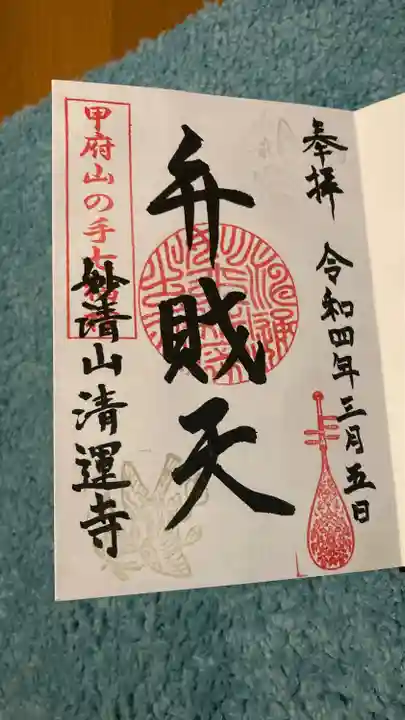 奉拝
令和四年三月五日
弁財天
甲府山の手七福
妙清山清運寺